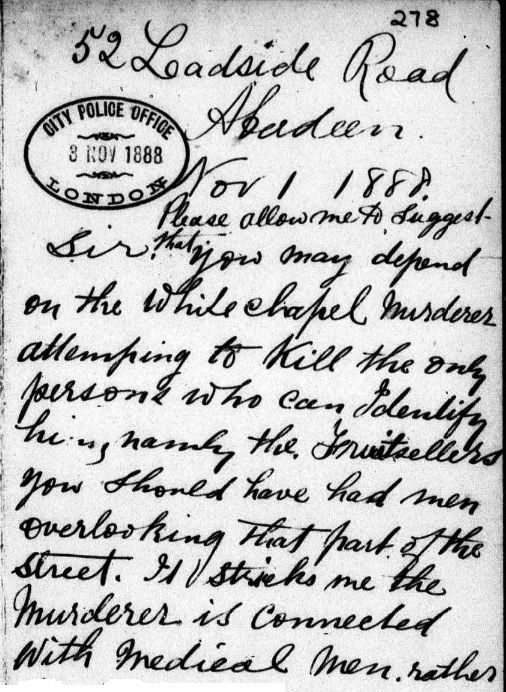 278
52 Loadside Road
Abadeen.
CITY POLICE OFFICE
3 NOV 1888
LONDON
Nov 1 1888.
Please allow me to suggest
Sir, that you may depend
on the Whitechapel Murderer
attemping to Kill the only
persons who can Identify
him, namly the Fruitsellers
you should have had men
overlooking that part of the
street. It striks me the
Murderer is connected
with medical men. rather